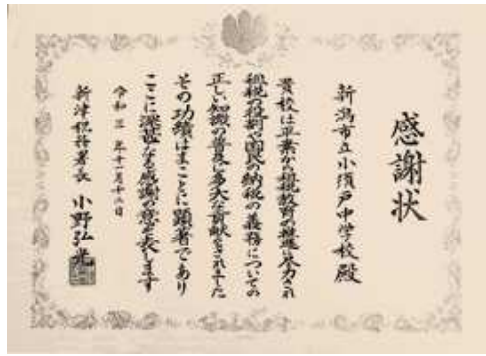 感謝状
新潟市立小須戸中学校殿
貴校は平素から租税教育の推進に尽力され
租税の役割や国民の納税の義務についての
正しい知識の普及に多大な貢献をされました
その功績はまことに顕著であり
ここに深甚なる感謝の意を表します
令和三年十一月十六日
新津税務署長 小野弘光